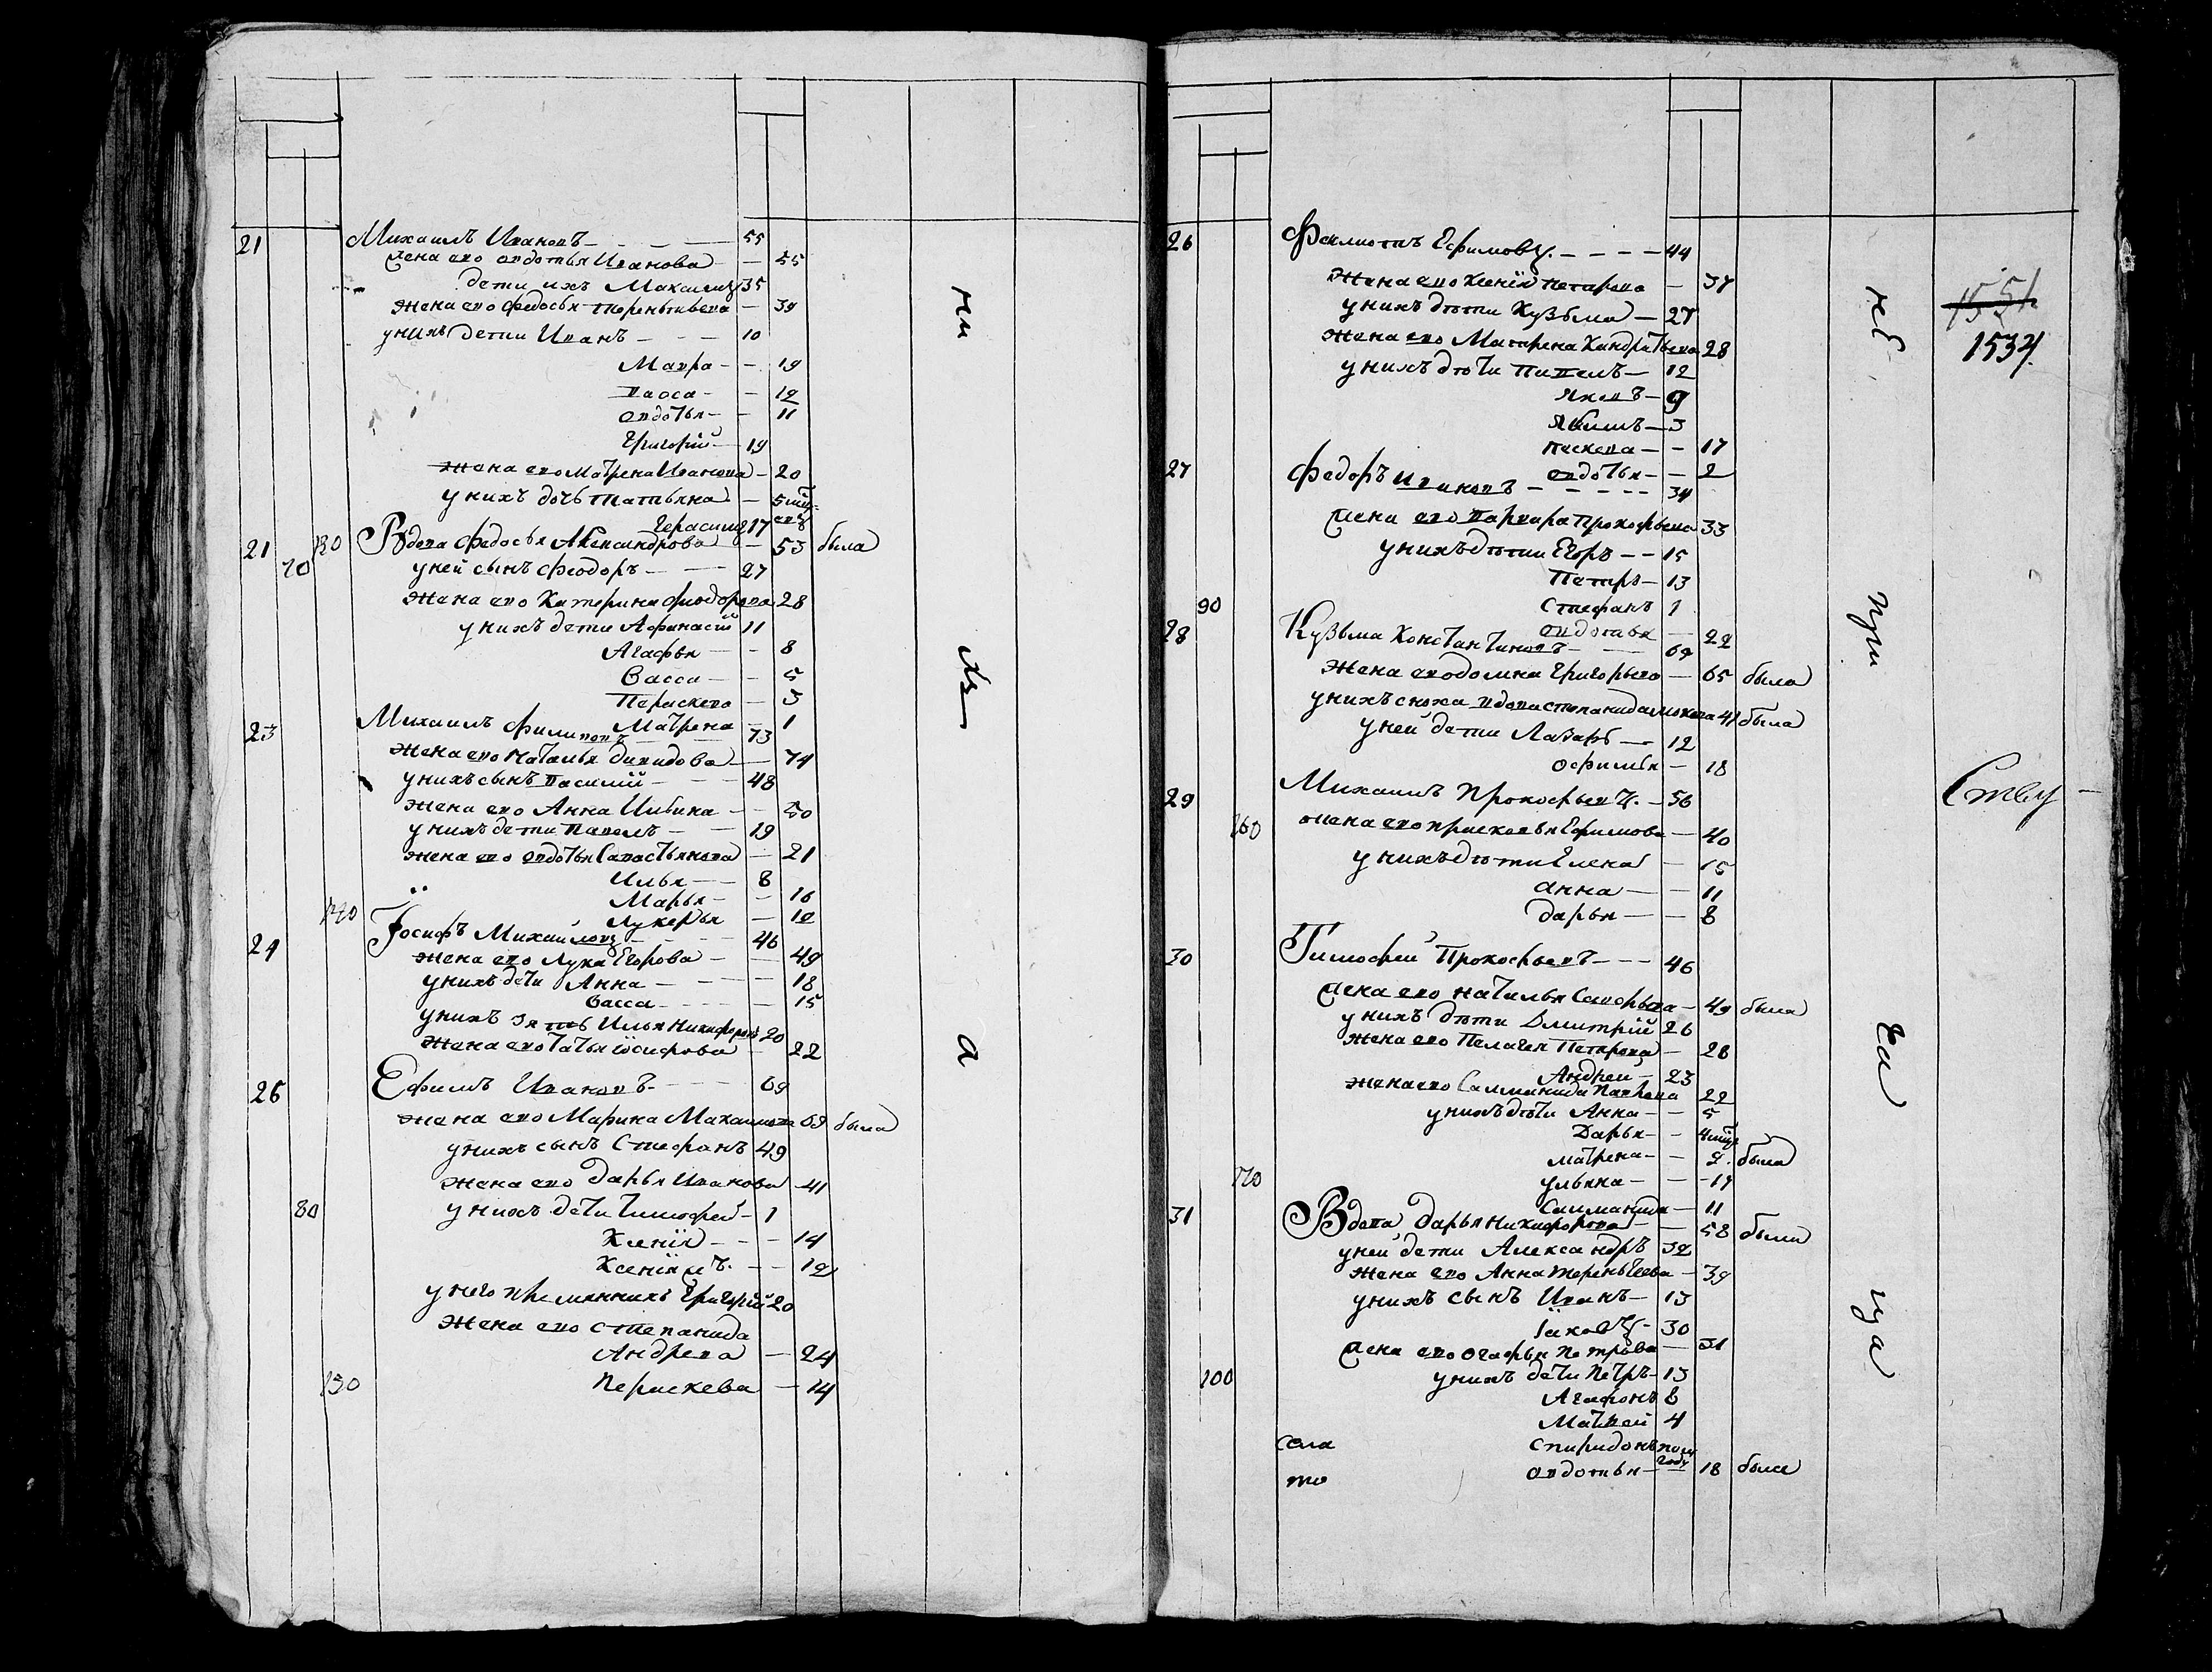 21 Михаилъ Ивановъ 55
жена его овдотья Иванова 55
дети ихъ Макъсимъ 35
жена его федосья терентьева 39
унихъ дети Иванъ 10
Мавра 19
Васса 12
овдотья 11
Григорій 19
жена его матрена Иванова 20
у нихъ дочь татьяна 5
Герасимъ 17
21 70 130 Вдова федосья Александрова 53 была
уней сынъ Феодоръ 27
жена его Катерина Феодорова 28
у нихъ дети Афанасій 11
Агафья 8
Васса 5
Пераскева 3
Матрена 1
23 Михаилъ Филиповъ 73
жена его наталья давидова 74
унихъ сынъ василий 48
жена его Анна Ильина 50
унихъ дети Павелъ 19
жена его овдотья Савастьянова 21
Илья 8
Марья 16
140 Лукерья 12
24 Іосифъ Михайловъ 46
жена его Лукия Егорова 49
унихъ дети Анна 18
Васса 15
унихъ зять Илья Никифоровъ 20
жена его Татьяна іосифова 22
25 Ефимъ Ивановъ 69
жена его Марина Макъсимова 69 была
унихъ сынъ Стефанъ 49
жена его Дарья Иванова 41
80 у нихъ дети тимофей 1
Ксенія 14
Ксенія 12
у него племянникъ Григорій 20
Жена его степанида
Андреева 24
150 Пераскева 14
ни
ка
26 Филиппъ Ефимовъ 44
Жена его Ксенія петрова 37
унихъ дѣти Кузьма 27
жена его Матрена Кандратьева 28
у нихъ дѣти Павелъ 12
Яковъ 9
Якимъ 3
Паскева 17
овдотья 2
27 Федоръ Ивановъ 34
жена его Варвара Прокофьева 33
унихъ дѣти Егоръ 15
Петръ 13
90 Стефанъ 1
овдотья 22
28 Кузьма Константиновъ 69
жена его домна Григорьева 65 была
унихъ сноха вдова степанида 41 была
уней дети Лазарь 12
офимья 18
29 Михаилъ Прокофьевъ 56
160 жена его прасковья Ефимова 40
унихъ дѣти Елена 15
анна 11
дарья 8
30 Тимофей Прокофьевъ 46
жена его наталья 49 была
у нихъ дѣти Дмитрій 26
жена его Пелагея Петрова 28
Андреи 23
жена его Саламанида 22
унихъ дѣти Анна 5
Дарья 4
матрена 2 была
170 ульяна 17
Саламанида 11
31 Вдова дарья никифорова 58 была
уней дети Александръ 32
жена его Анна терентьева 39
унихъ сынъ Иванъ 13
Іаковъ 30
жена его огафья петрова 31
100 унихъ дети Петръ 13
Агафонъ 8
Матвей 4
спиридонъ пол году
овдотья 18 была
не
при
ча
ща
1551
1534